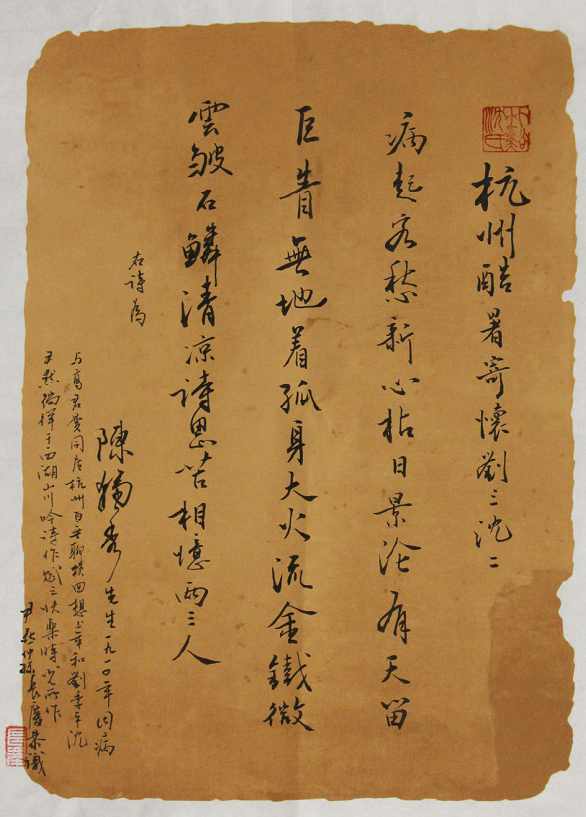 杭州酷暑寄懷劉三沈二
病起客愁新心枯日景淪有天留
巨眚無地着孤身大火流金鐵微
雲皺石鱗清凉詩思苦相憶兩三人
右詩為
陳獨秀先生一九一〇年因病
与高君曼同居杭州百無聊賴回想上年和劉季平沈
尹默徜徉于西湖山川吟詩作賦之快樂時光所作
尹默仲孫長慶恭識